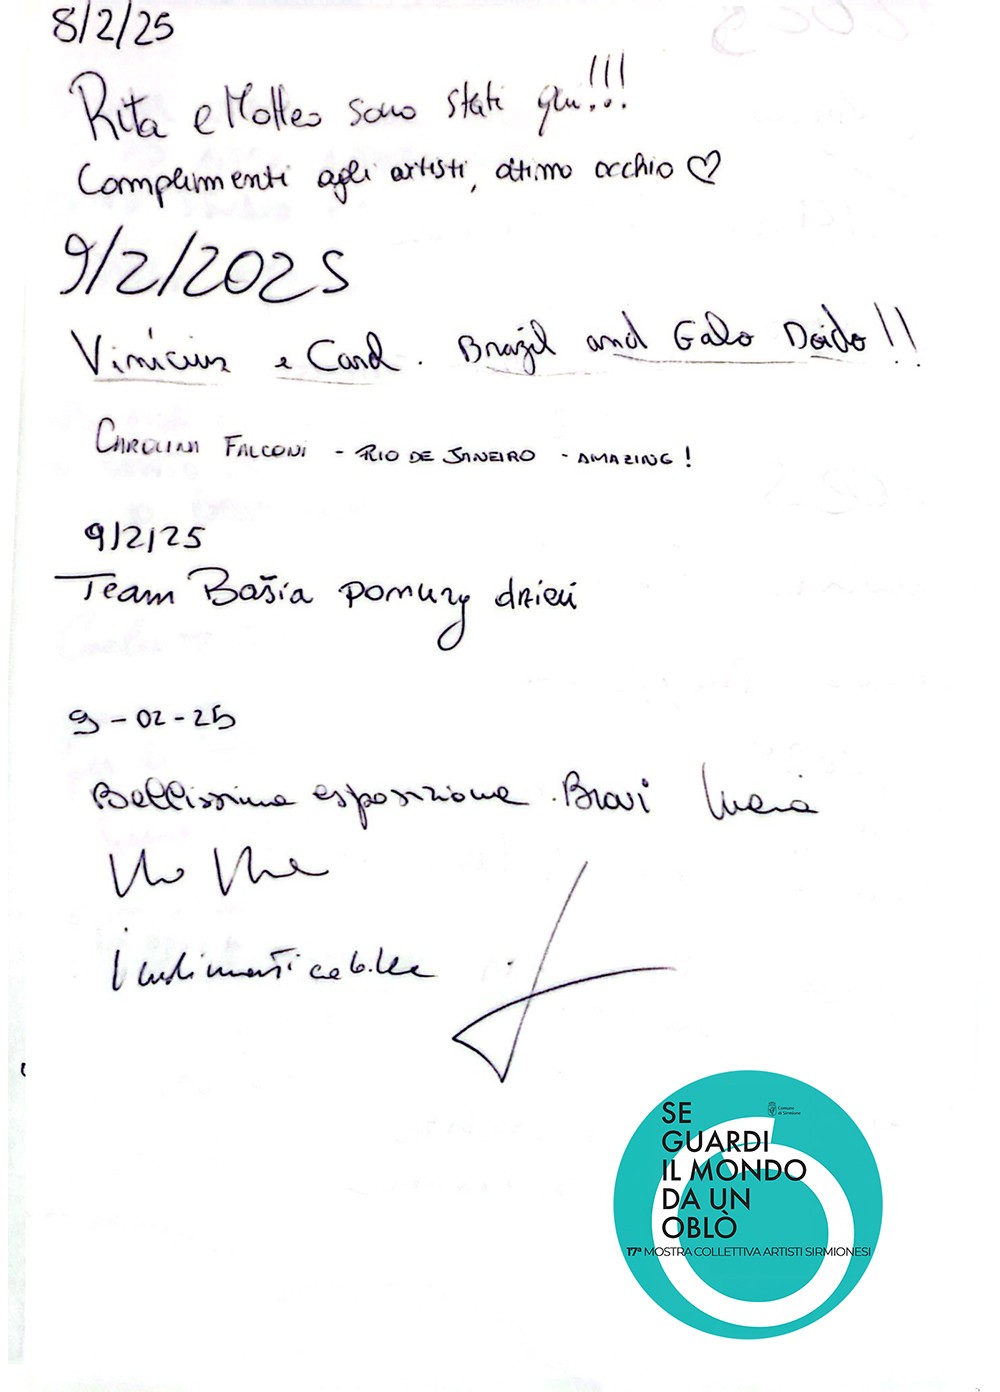 8/2/25
Rita e Matteo sono stati qui!!!
Complimenti agli artisti, ottimo occhio ♡
9/2/2025
Vinícius e Carol. Brazil and Galo Doido!!
CAROLINA FALCONI - RIO DE JANEIRO - AMAZING!
9/2/25
Team Basia
9-02-25
Bellissima esposizione. Bravi
SE
GUARDI
IL MONDO
DA UN
OBLÒ
Comune
di Sirmione
17ª MOSTRA COLLETTIVA ARTISTI SIRMIONESI